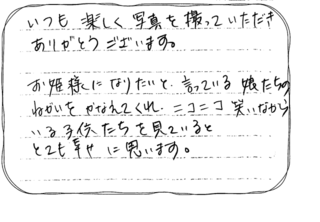 いつも 楽しく 写真を 撮っていただき
ありがとうございます。
お姫様に なりたいと、言っている 娘たちの
ねがいを かなえてくれ、ニコニコ 笑いながら
いる子供たちを見ていると
とても幸せに思います。